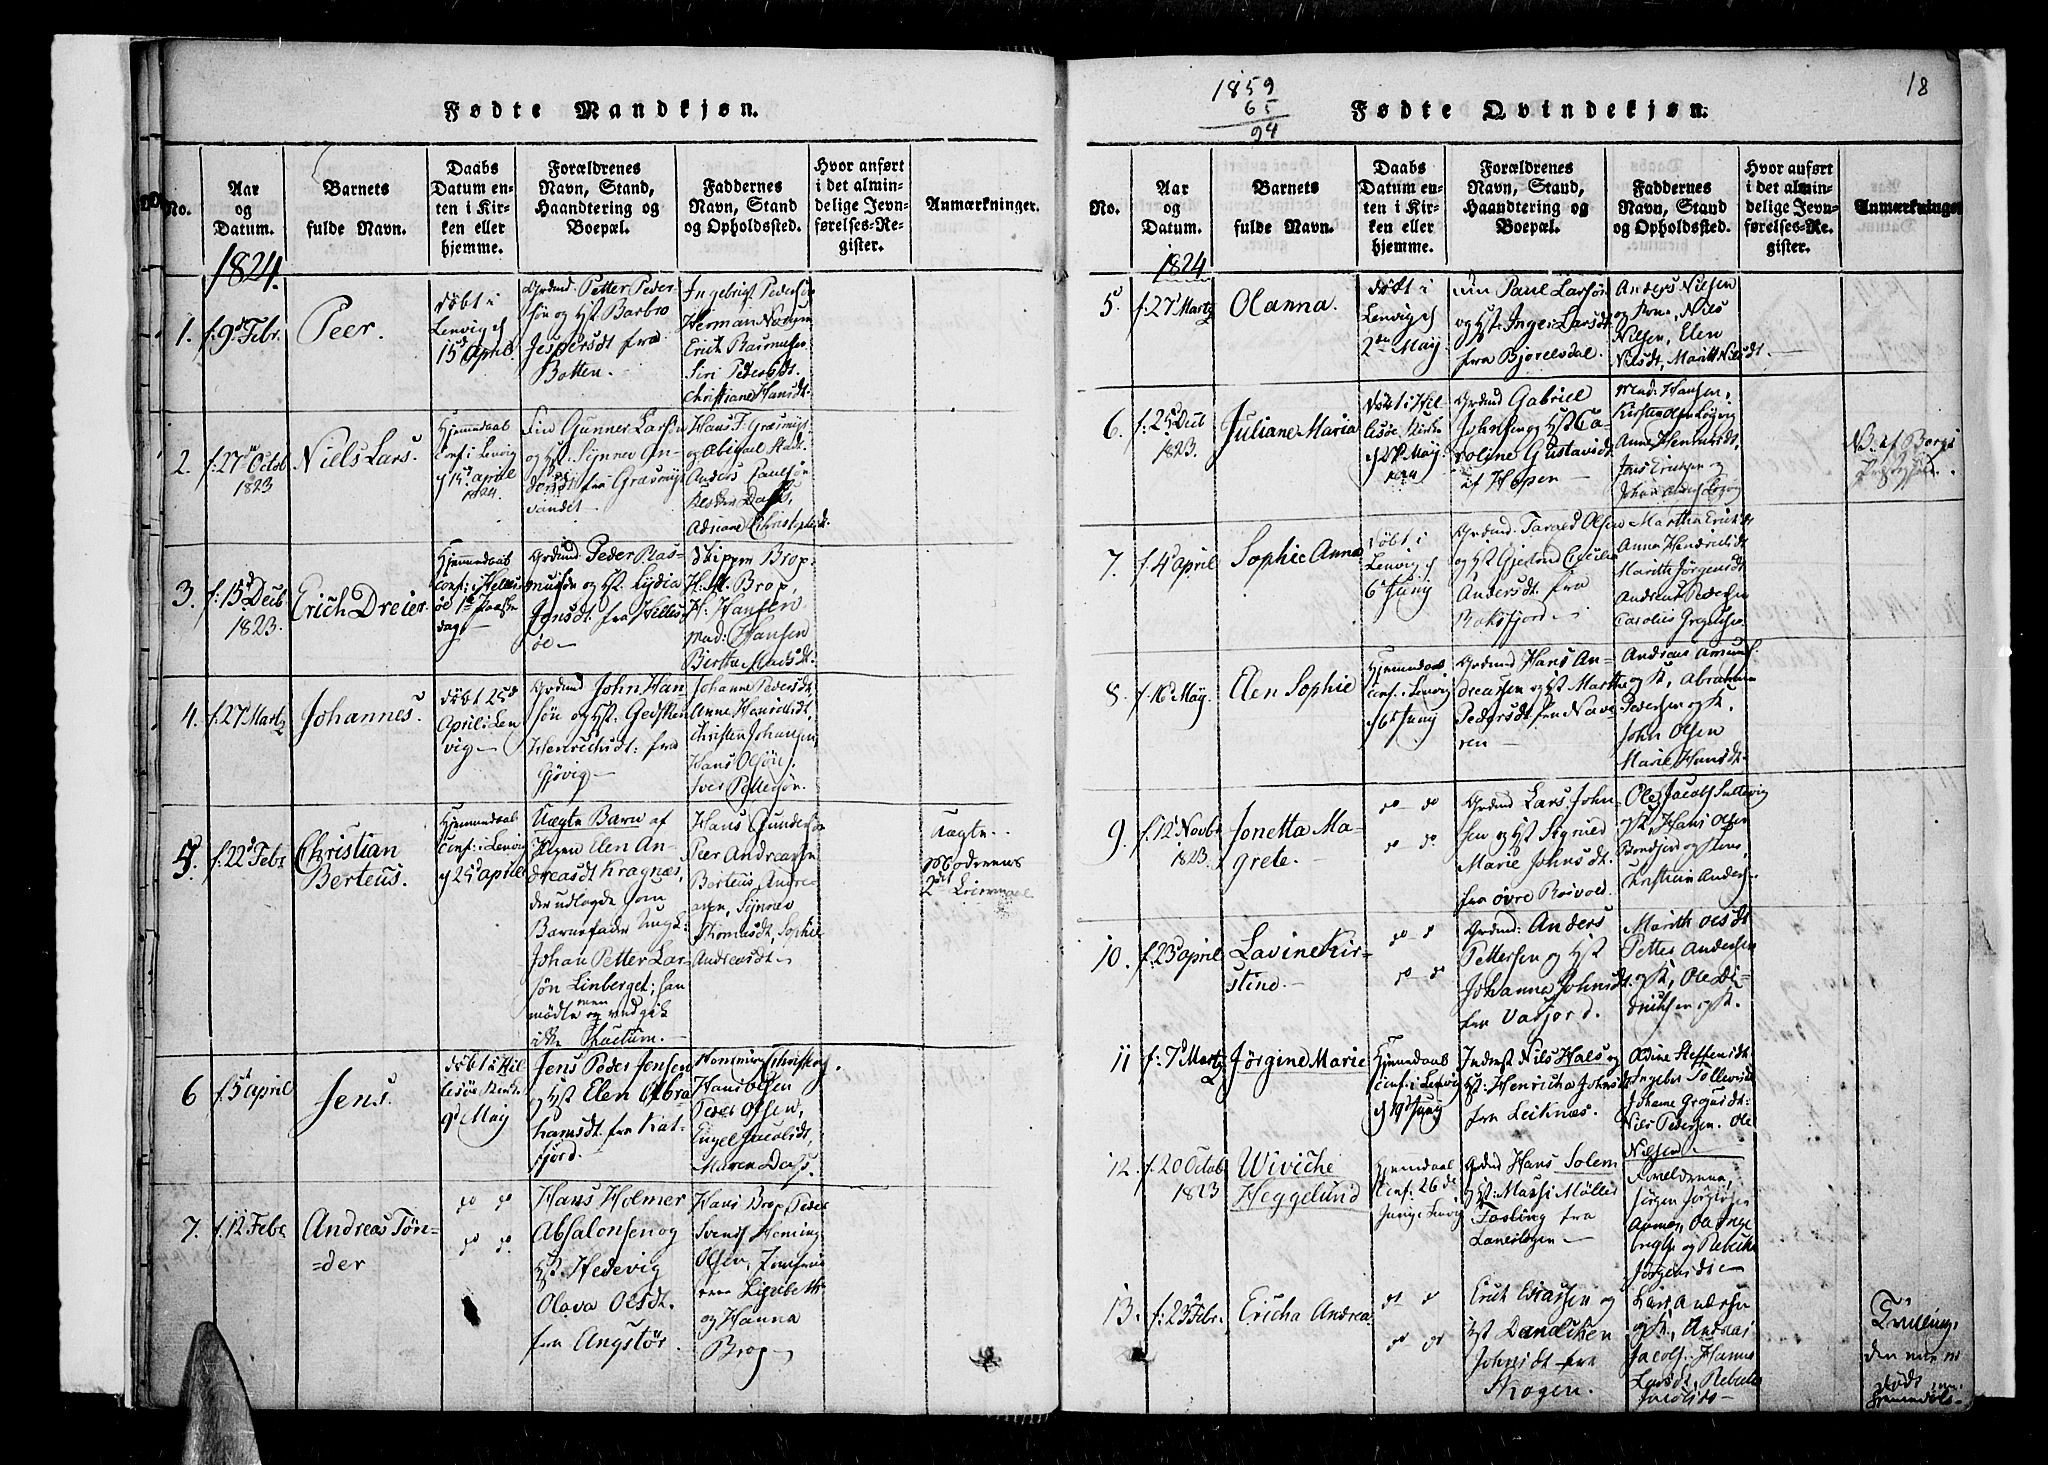 Fødte Mandkjøn.
No.
Aar
og
Datum.
Barnets
fulde Navn.
Daabs
Datum en-
ten i Kir-
ken eller
hjemme.
Forældrenes
Navn, Stand,
Haandtering og
Boepæl.
Faddernes
Navn, Stand
og Opholdssted.
Hvor anført
i det almin-
delige Jevn-
førelses-Re-
gister.
Anmærkninger.
1824.
1.
f. 9d Febr.
Peer.
døbt i
Lenvig d
15d April
Petter Peder-
søn og Hst Barbro
Jespersdt fra
Botten.
Ingebrigt Pedersøn
Herman
Erich Rasmusen
Siri Pedersdt.
Christiane Hansdt.
2.
f. 27de Octob
1823
Niels Lars.
Hjemmedaab
conf. i Lenvig
d 15d april
1824.
Gunner Larsen
og Hst. Synnev An-
dersdt fra Græsmyr
vandet.
Hans F. Græsmyr
Anders Paulsøn
Adriane Christophdt.
3.
f. 15d Decb
1823.
Erich Dreier
Hjemmedaab
conf. i Hellis
øe 1te Paaske
dag
Peder Ras-
musøn og Hst. Lydia
Jonsdt fra Hellis
øe
Skipper Brop.
H. M. Brop,
H. Hansen
Mad: Hansen
Bertha Madsdt.
4.
f. 27d Martz
Johannes.
døbt 25d
April i Len
vig
John Han
søn og Hst. Gedsken
Henrichsdt: fra
Gjøvig
Johanne Pedersdt
Anne Henrichsdt,
Christen Johansen,
Hans Olsøn,
Iver Pettersøn.
5.
f. 22d Febr
Christian
Berteus.
Hjemmedaab
conf. i Lenvig
d 25d april
Uægte Barn af
Pigen Elen An-
dreasdt Kragnæs,
der udlagde som
Barnefader Ungk:
Johan Petter Lar-
søn Linberget; han
mødte men og vedgik
ikke Factum.
Hans Gundersen
Peer Andreassen
Berteus Andre
asen, Synnev
Thomasdt, Sophie
Andreasdt
Uægte.
Moderens
2det Leiermaal
6
f. 5d april
Jens.
døbt i Hil
lesøe Kirke
9d May
Jens Peder Jensen
og Hst Elen Abra
hamsdt fra Kat-
fjord.
Hans Olsen
Peder Olsen,
Engel Jacobsdt,
Maren Dass.
7.
f. 12 Febr
Andreas Tøn=
=der
do do
do do.
Hans Holmer
Absalonsen og
Hst. Hedevig
Olava Olsdt.
fra Angstør.
Hans Brop, Peder
Svends Heming
Olsen, Jomfrue
Lisebeth
og Hanna
Brop
1859
65
94
18
Fødte Qvindekjøn.
No.
Aar
og
Datum.
Barnets
fulde Navn.
Daabs
Datum en-
ten i Kir-
ken eller
hjemme.
Forældrenes
Navn, Stand,
Haandtering og
Boepæl.
Faddernes
Navn, Stand
og Opholdssted.
Hvor anført
i det almin-
delige Jevn-
førelses-Re-
gister.
Anmærkninge
1824
5
f. 27d Martz
Olanna.
døbt i
Lenvig d
2den May
Paul Larsøn
og Hst. Inger Larsdt
fra Bjorelvdal.
Anders Nielsen
og Kone, Niels
Nilsen, Elen
Nilsdt, Marith Nilsdt.
6.
f. 25d Decb
1823.
Juliane Maria
døbt i Hil
lesøe Kirke
d 27d May
1824
Gabriel
Johnsen og Hst Ca-
roline Gustavsdt
af Hopen
Mad: Hansen,
Anne Henrichsdt,
Jens Erichsen og
NB. af Bergs
7.
f. 4d april
Sophie Anna
døbt i
Lenvig d
6d Juny
Tarald Olsen
og Hst Gjertrud Cecilia
Andersdt fra
Rossfjord
Martha Erichsdt
Anne Hendrichsdt
Marith Jørgensdt
Andreas Pedersen
8.
f. 16d May.
Elen Sophie
Hjemmedaab
conf. i Lenvig
d 6d Juny
Hans An-
dreasen og Hst Marthe
Pedersdt fra Nave
ren
Andreas Amund-
og K, Abraham
Pedersen og K.
John Olsen
Marie Hansdt.
9.
f. 12d Novbr
1823.
Jonetta Ma-
grete.
do do
do do.
Lars John
sen og Hst Sigried
Marie Johnsdt
fra øvre Rosvold
Ole Jacobs
og K, Hans Olsen
Christian Anders.
10.
f. 23d april
Lavine Kir-
stine.
do do
do do
Anders
Pettersen og Hst
Johanna Johnsdt
fra Vasjord.
Marith Olsdt
Petter Andersen
og K, Ole Di-
drichsen og K.
11
f. 7d Martz
Jørgine Marie
Hjemmedaab
conf. i Lenvig
d 19d Juny
Inderst Nils Hals og
Hst: Henricha Johnsdt
fra Leiknæs.
Oldine Steffensdt
Ingeber Tollevsdt
Johanne Gregusdt:
Nils Pedersen. Ole
Nilsen.
12.
f. 20 Octob
1823
Wiviche
Heggelund
Hjemdaab
conf. 26de
Juny i Lenvig
Hans Solem
Hst: Massi Møller
Fosling fra
Lanesløgen
Forældrene,
Jørgen Jørgensen
Aarnes, Ole Inge
brigts og Rebecka
Jørgensdt
13.
f. 23d Febr.
Ericha Andrea
do do
do do
Erich Esiassen og
Hst Dandeken
Johnsdt fra
Skogen.
Lars Andersen
og K, Andreas
Jacobs. Hanna
Larsdt, Rebecka
Jacobsdt
Tvilling,
den